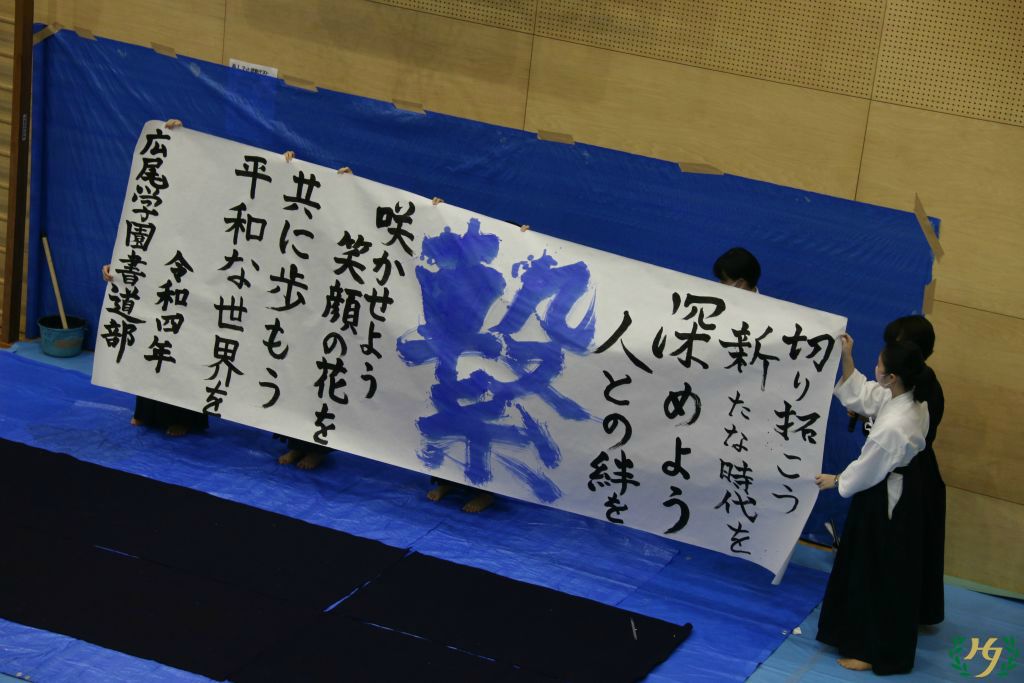 切り拓こう
新たな時代を
深めよう
人との絆を
繋
咲かせよう
笑顔の花を
共に歩もう
平和な世界を
令和四年
広尾学園書道部
HJ